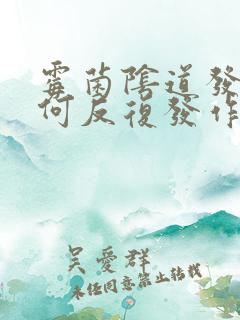 霉菌陰道發
何反復發作
吳愛群
未任同意禁止轉載